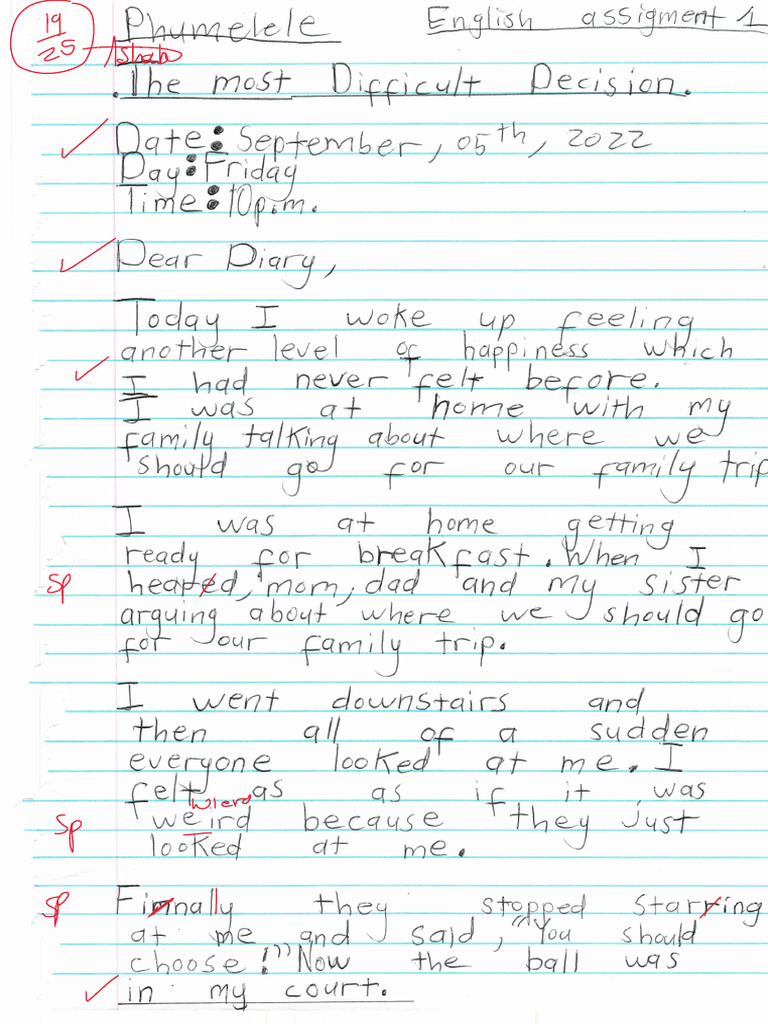 19
25
Phumelele English assigment 1
.The most Difficult Decision.
Date: September, 05th, 2022
Day: Friday
Time: 10p.m.
Dear Diary,
Today I woke up feeling
another level of happiness which
I had never felt before.
I was at home with my
family talking about where we
should go for our family trip
I was at home getting
ready for breakfast. When I
Sp heared, mom, dad and my sister
arguing about where we should go
for our family trip.
I went downstairs and
then all of a sudden
everyone looked at me. I
felt as as if it was
wierd
Sp weird because they just
looked at me.
Sp Finnally they stopped starring
at me and said, "You should
choose!" Now the ball was
in my court.